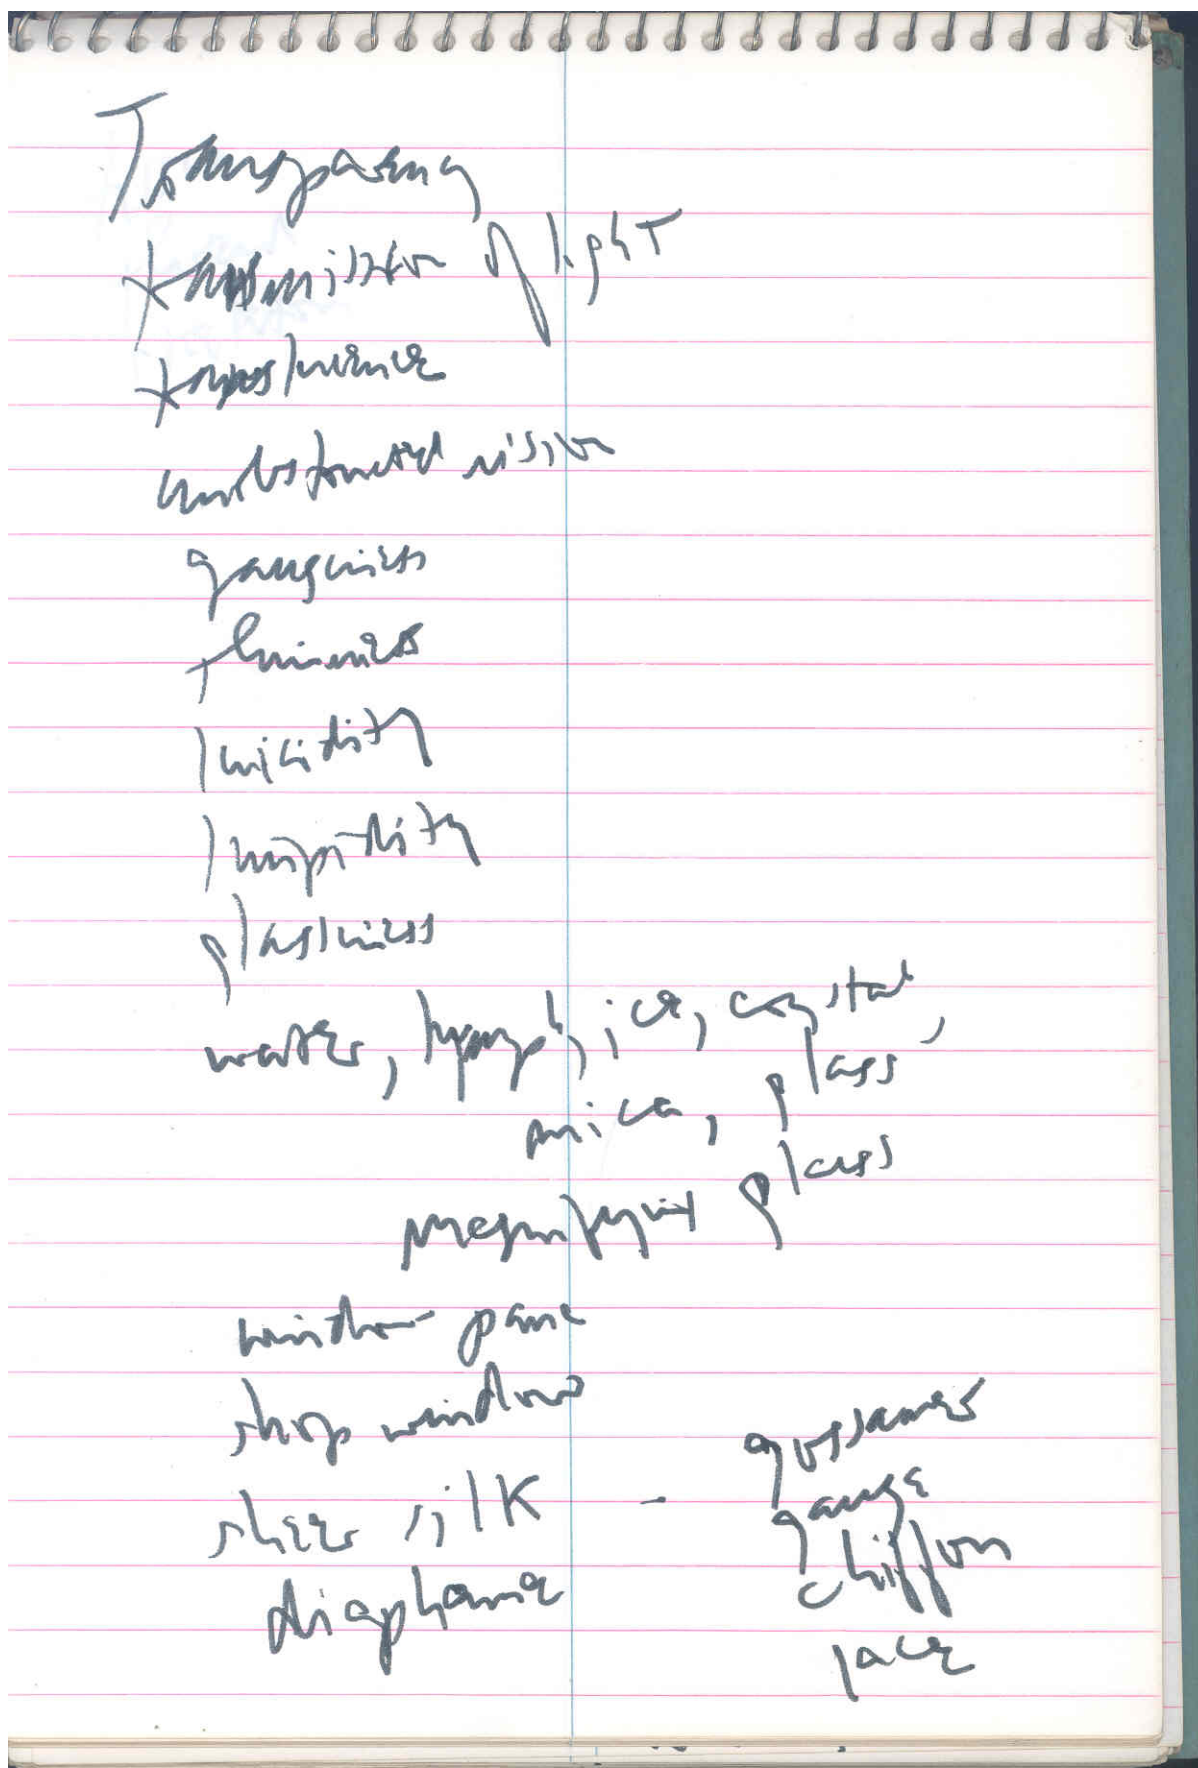 Transparency
transmission of light
translucence
unobstructed vision
gauziness
thinness
lucidity
limpidity
glassiness
water, lymph, ice, crystal,
mica, glass
magnifying glass
window pane
shop window
sheer silk - gossamer
gauze
chiffon
diaphane
lace